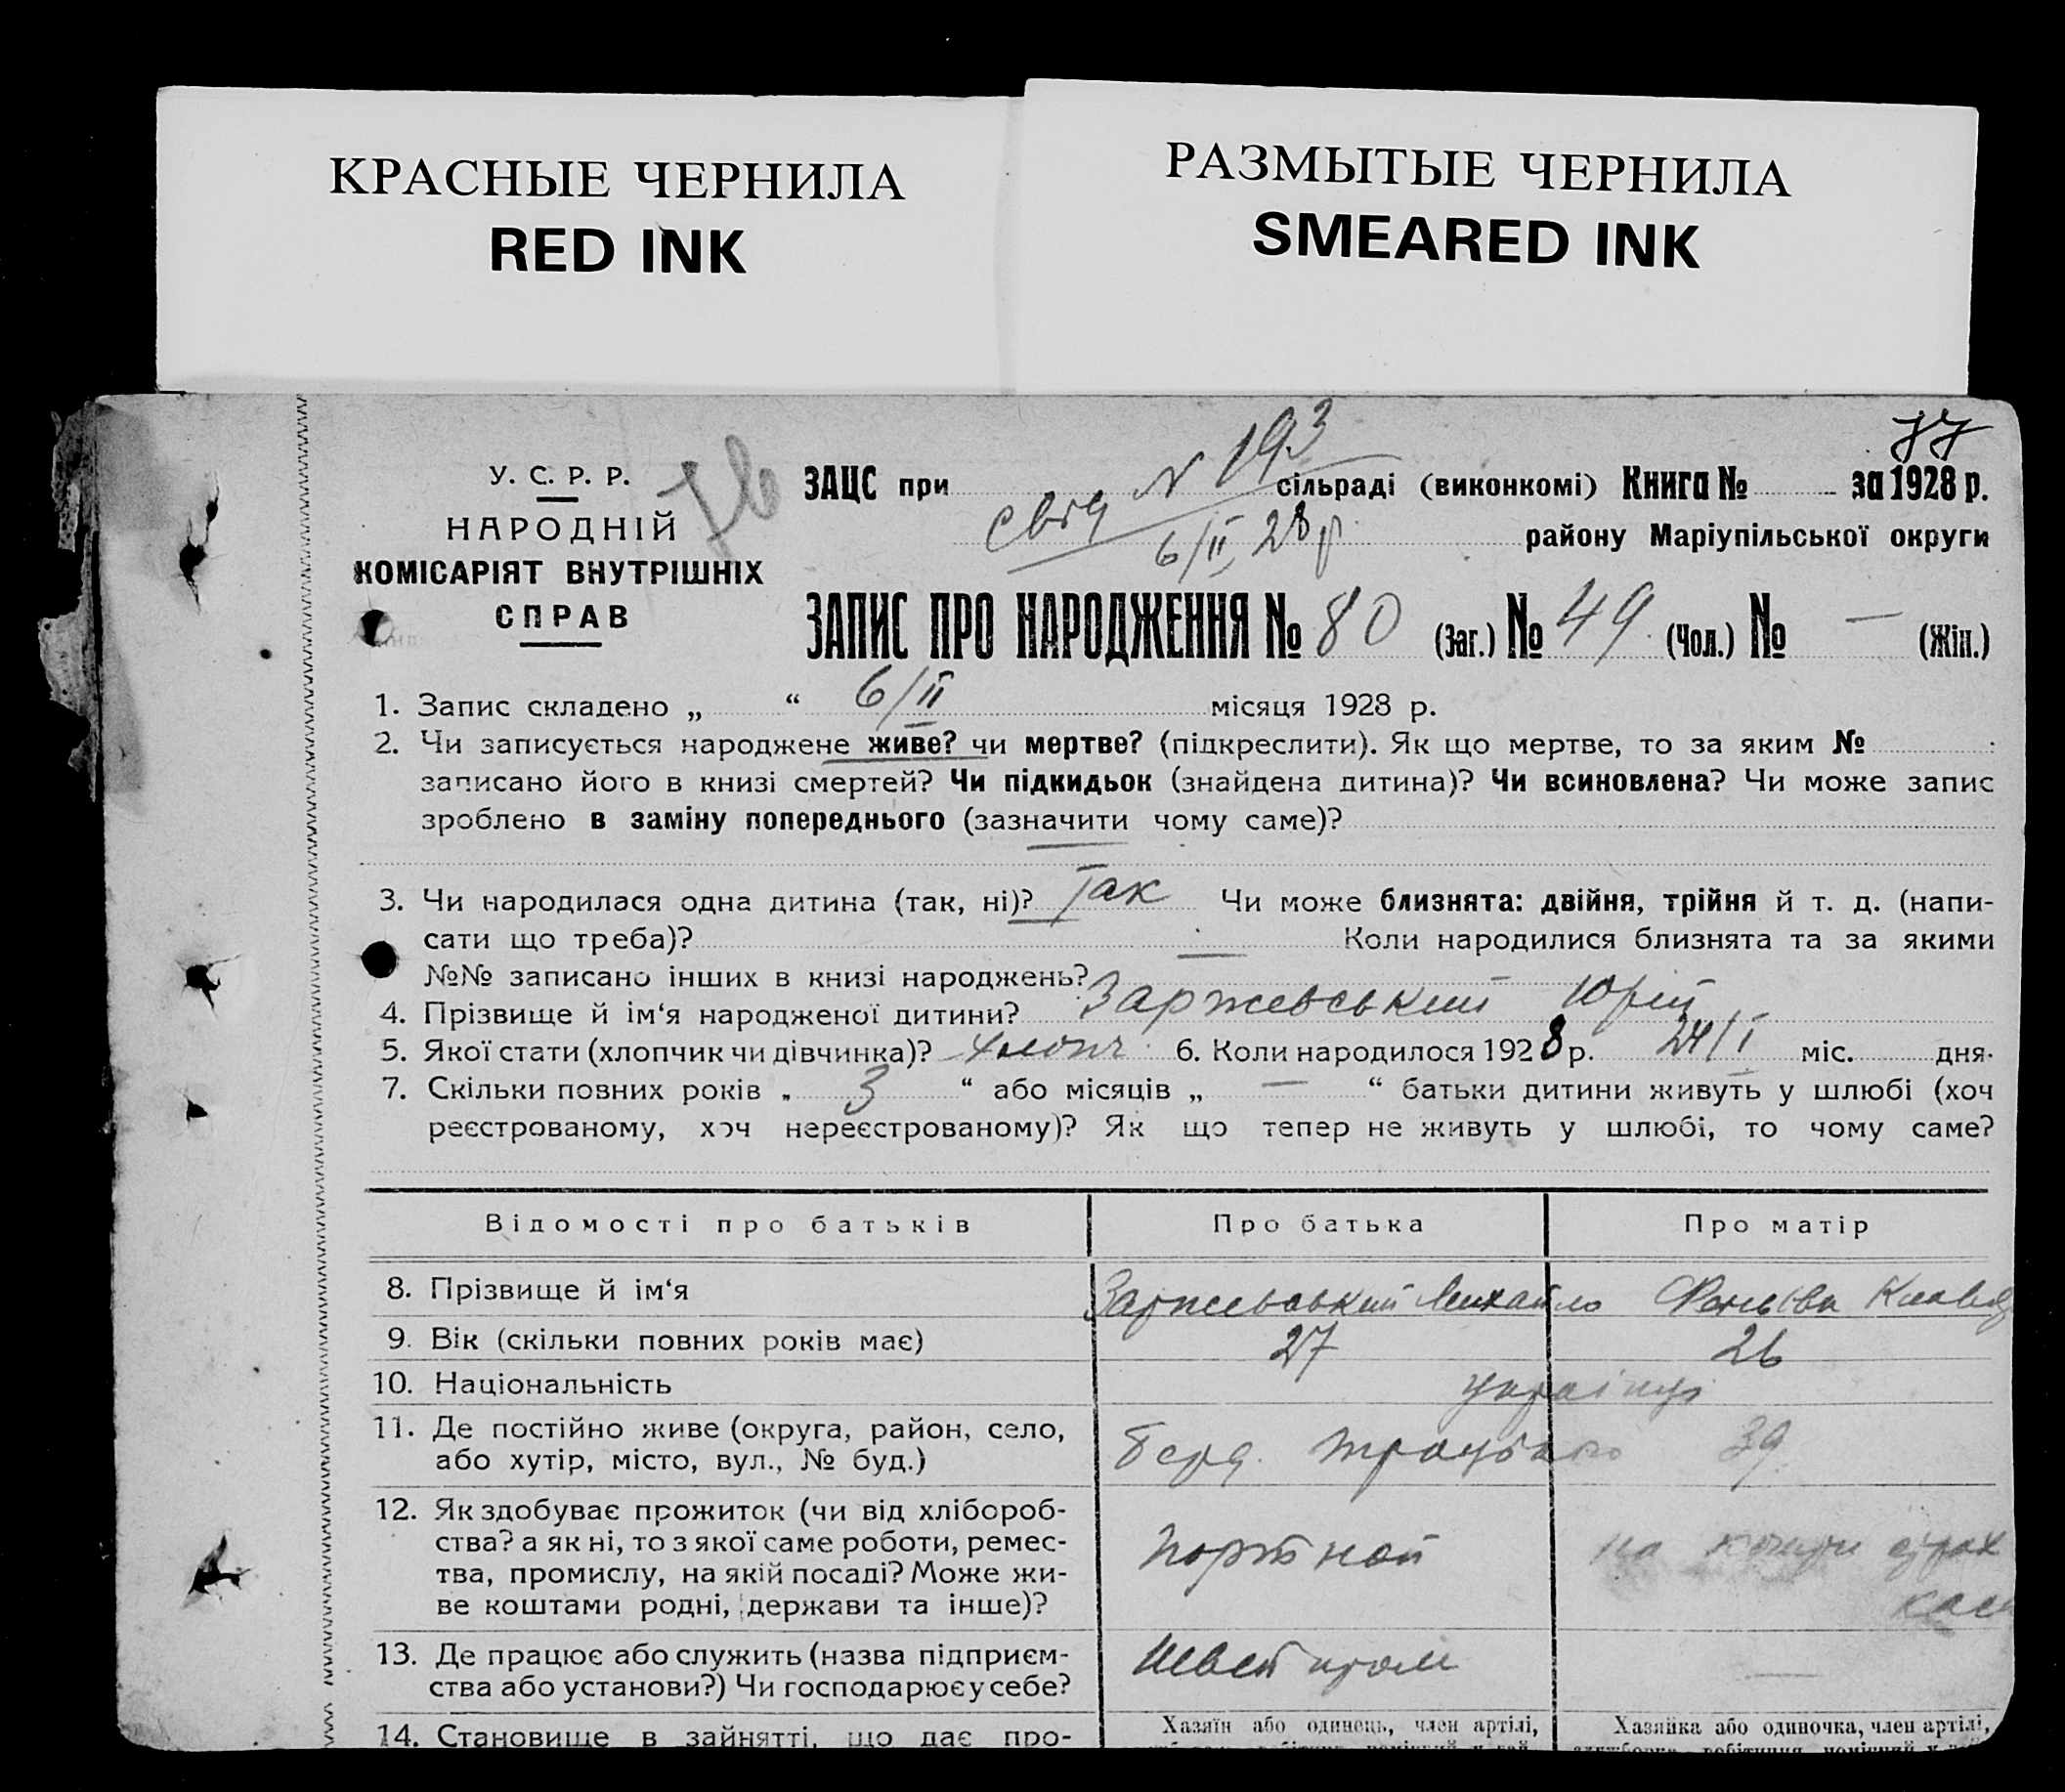 КРАСНЫЕ ЧЕРНИЛА
RED INK
РАЗМЫТЫЕ ЧЕРНИЛА
SMEARED INK
77
76
У. С. Р. Р.
НАРОДНІЙ
КОМІСАРІЯТ ВНУТРІШНІХ
СПРАВ
ЗАЦС при N 193 сільраді (виконкомі) Книга № за 1928 р.
6/II 28 р. району Маріупільської округи
ЗАПИС ПРО НАРОДЖЕННЯ № 80 (Заг.) № 49 (Чол.) № — (Жін.)
1. Запис складено „ “ 6/II місяця 1928 р.
2. Чи записується народжене живе? чи мертве? (підкреслити). Як що мертве, то за яким №
записано його в книзі смертей? Чи підкидьок (знайдена дитина)? Чи всиновлена? Чи може запис
зроблено в заміну попереднього (зазначити чому саме)?
3. Чи народилася одна дитина (так, ні)? Так Чи може близнята: двійня, трійня й т. д. (напи-
сати що треба)? — Коли народилися близнята та за якими
№№ записано інших в книзі народжень? —
4. Прізвище й ім‘я народженої дитини? Заржевський Юрій
5. Якої стати (хлопчик чи дівчинка)? хлопч 6. Коли народилося 1928 р. 24/I міс. дня.
7. Скільки повних років „ 3 “ або місяців „ — “ батьки дитини живуть у шлюбі (хоч
реєстрованому, хоч нереєстрованому)? Як що тепер не живуть у шлюбі, то чому саме?
Відомості про батьків Про батька Про матір
8. Прізвище й ім‘я Заржевський Михайло
9. Вік (скільки повних років має) 27 26
10. Національність українці
11. Де постійно живе (округа, район, село,
або хутір, місто, вул., № буд.) Берд. Троцького 39
12. Як здобуває прожиток (чи від хлібороб-
ства? а як ні, то з якої саме роботи, ремес-
тва, промислу, на якій посаді? Може жи-
ве коштами родні, держави та інше)? Портной на
13. Де працює або служить (назва підприєм-
ства або установи?) Чи господарює у себе? Швейпром —
14. Становище в зайнятті, що дає про-
Хазяїн або одинець, член артілі,
Хазяйка або одиночка, член артілі,